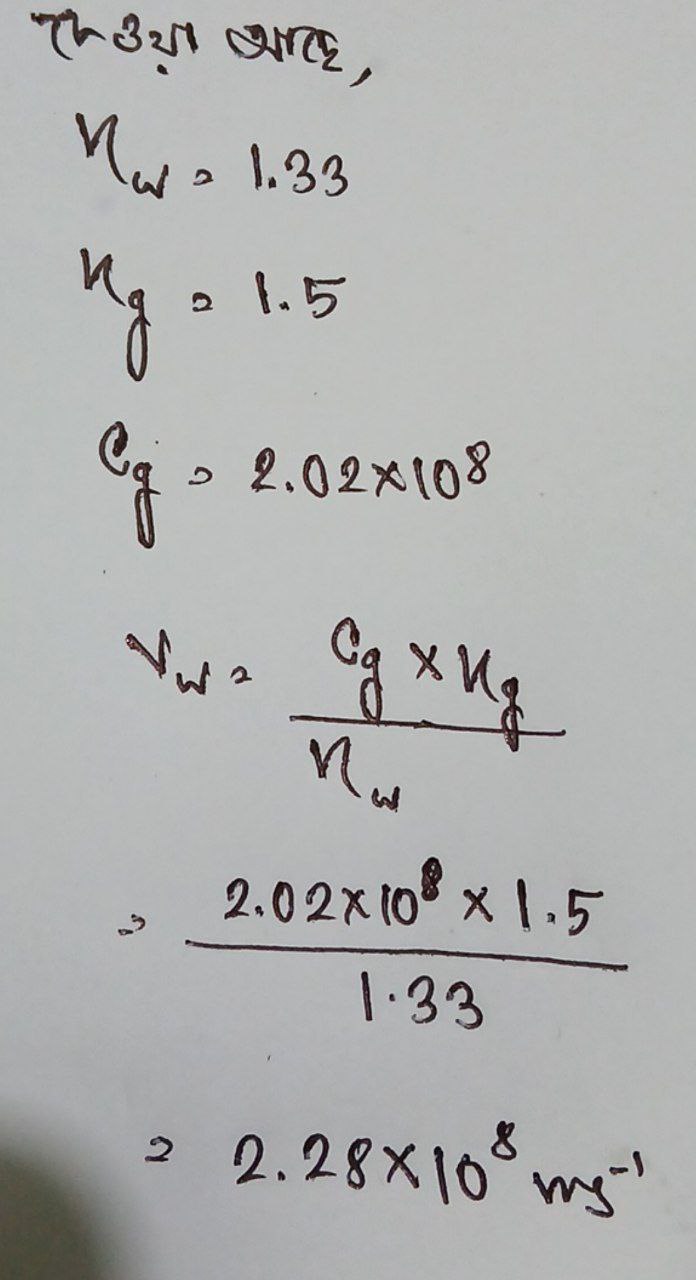 দেওয়া আছে,
n_w = 1.33
n_g = 1.5
C_g = 2.02×10⁸
V_w = C_g × n_g / n_w
= 2.02×10⁸ × 1.5 / 1.33
= 2.28×10⁸ ms⁻¹